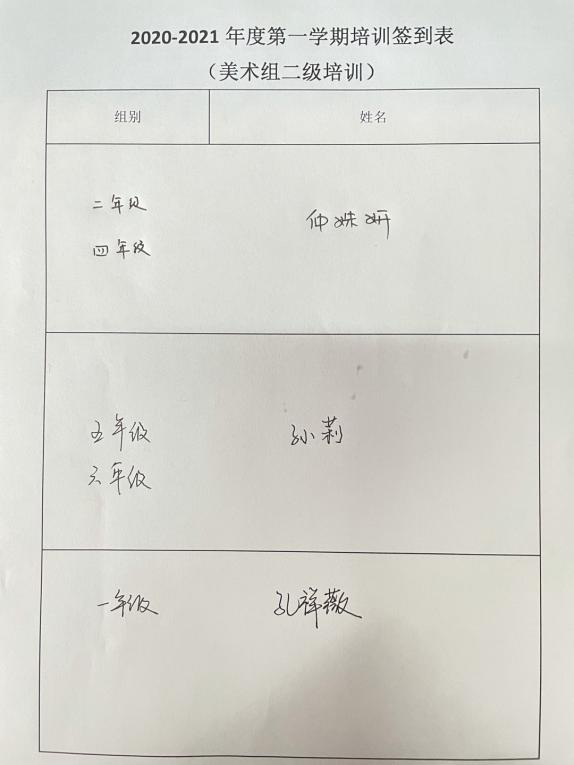 2020-2021 年度第一学期培训签到表
（美术组二级培训）
组别 姓名
二年级
仲姝妍
四年级
五年级
孙莉
六年级
一年级 孔祥薇